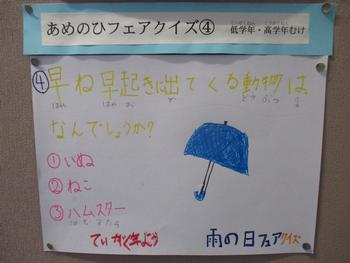 あめのひフェアクイズ④ 低学年・高学年むけ
④早ね早起きに出てくる動物は
なんでしょうか?
①いぬ
②ねこ
③ハムスター
ていがく年よう 雨の日フェアクイズ